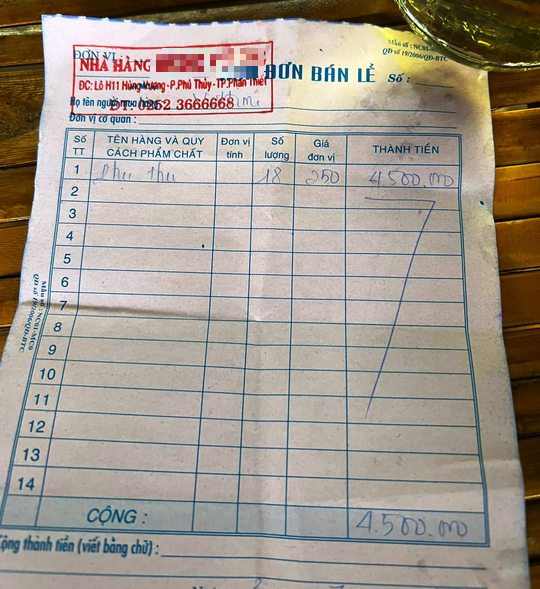 ĐƠN VỊ :
Mẫu số : NC01-
QĐ số 19/2006/QĐ-BTC
NHÀ HÀNG
ĐƠN BÁN LẺ Số :
ĐC: Lô H11 Hùng Vương - P.Phú Thủy - TP.Phan Thiết
ĐT: 0252 3666668
Họ tên người mua hàng
Đơn vị cơ quan :
Số TT TÊN HÀNG VÀ QUY CÁCH PHẨM CHẤT Đơn vị tính Số lượng Giá đơn vị THÀNH TIỀN
1 Phụ thu 18 250 4.500.000
2
3
4
5
6
7
8
9
10
11
12
13
14
CỘNG : 4.500.000
Cộng thành tiền (viết bằng chữ) :
Mẫu số : NC01-MC0
QĐ số 19/2006/QĐ-BTC